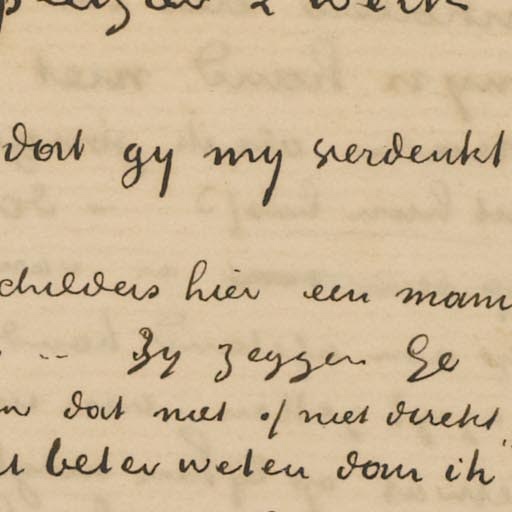 dat gy my verdenkt
childers hier een man
.. Zy zeggen Ge
dat niet of niet direkt
beter weten dan ik"